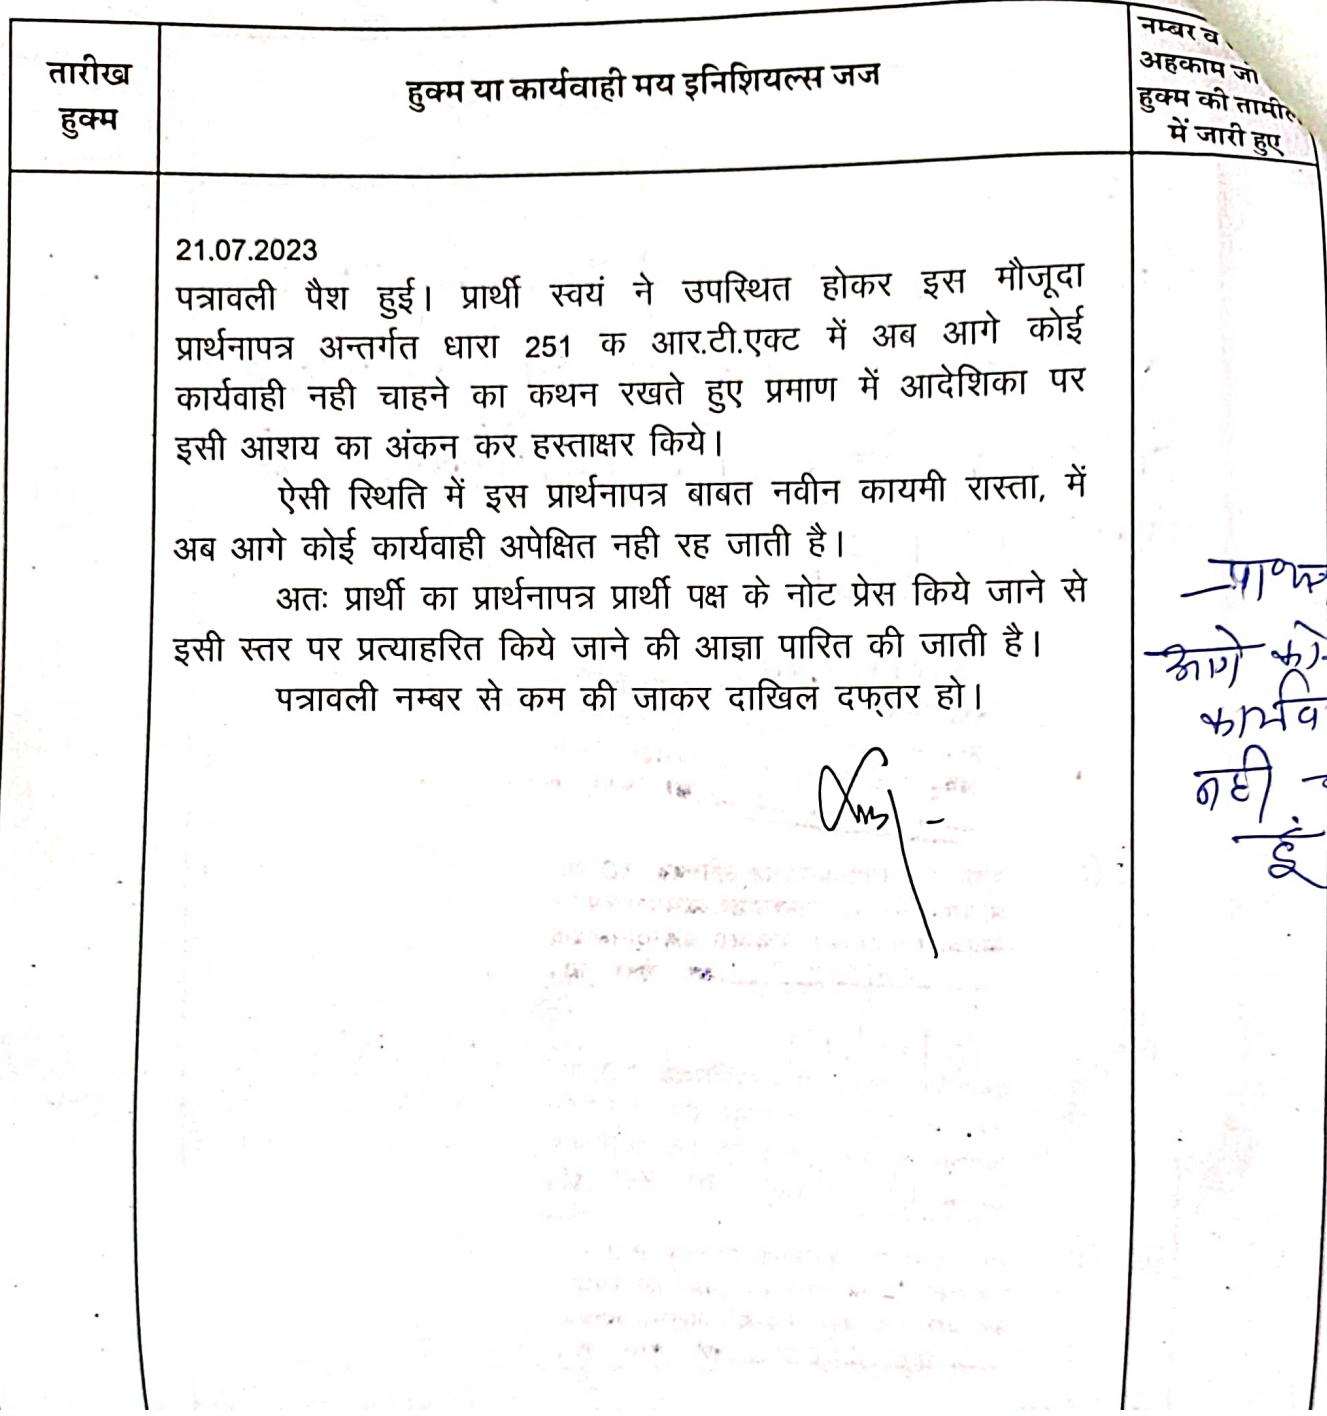 तारीख
हुक्म
हुक्म या कार्यवाही मय इनिशियल्स जज
नम्बर व
अहकाम जो
हुक्म की तामील
में जारी हुए
21.07.2023
पत्रावली पैश हुई। प्रार्थी स्वयं ने उपस्थित होकर इस मौजूदा
प्रार्थनापत्र अन्तर्गत धारा 251 क आर.टी.एक्ट में अब आगे कोई
कार्यवाही नही चाहने का कथन रखते हुए प्रमाण में आदेशिका पर
इसी आशय का अंकन कर हस्ताक्षर किये।
ऐसी स्थिति में इस प्रार्थनापत्र बाबत नवीन कायमी रास्ता, में
अब आगे कोई कार्यवाही अपेक्षित नही रह जाती है।
अतः प्रार्थी का प्रार्थनापत्र प्रार्थी पक्ष के नोट प्रेस किये जाने से
इसी स्तर पर प्रत्याहरित किये जाने की आज्ञा पारित की जाती है।
पत्रावली नम्बर से कम की जाकर दाखिल दफ्तर हो।
आगे
नही